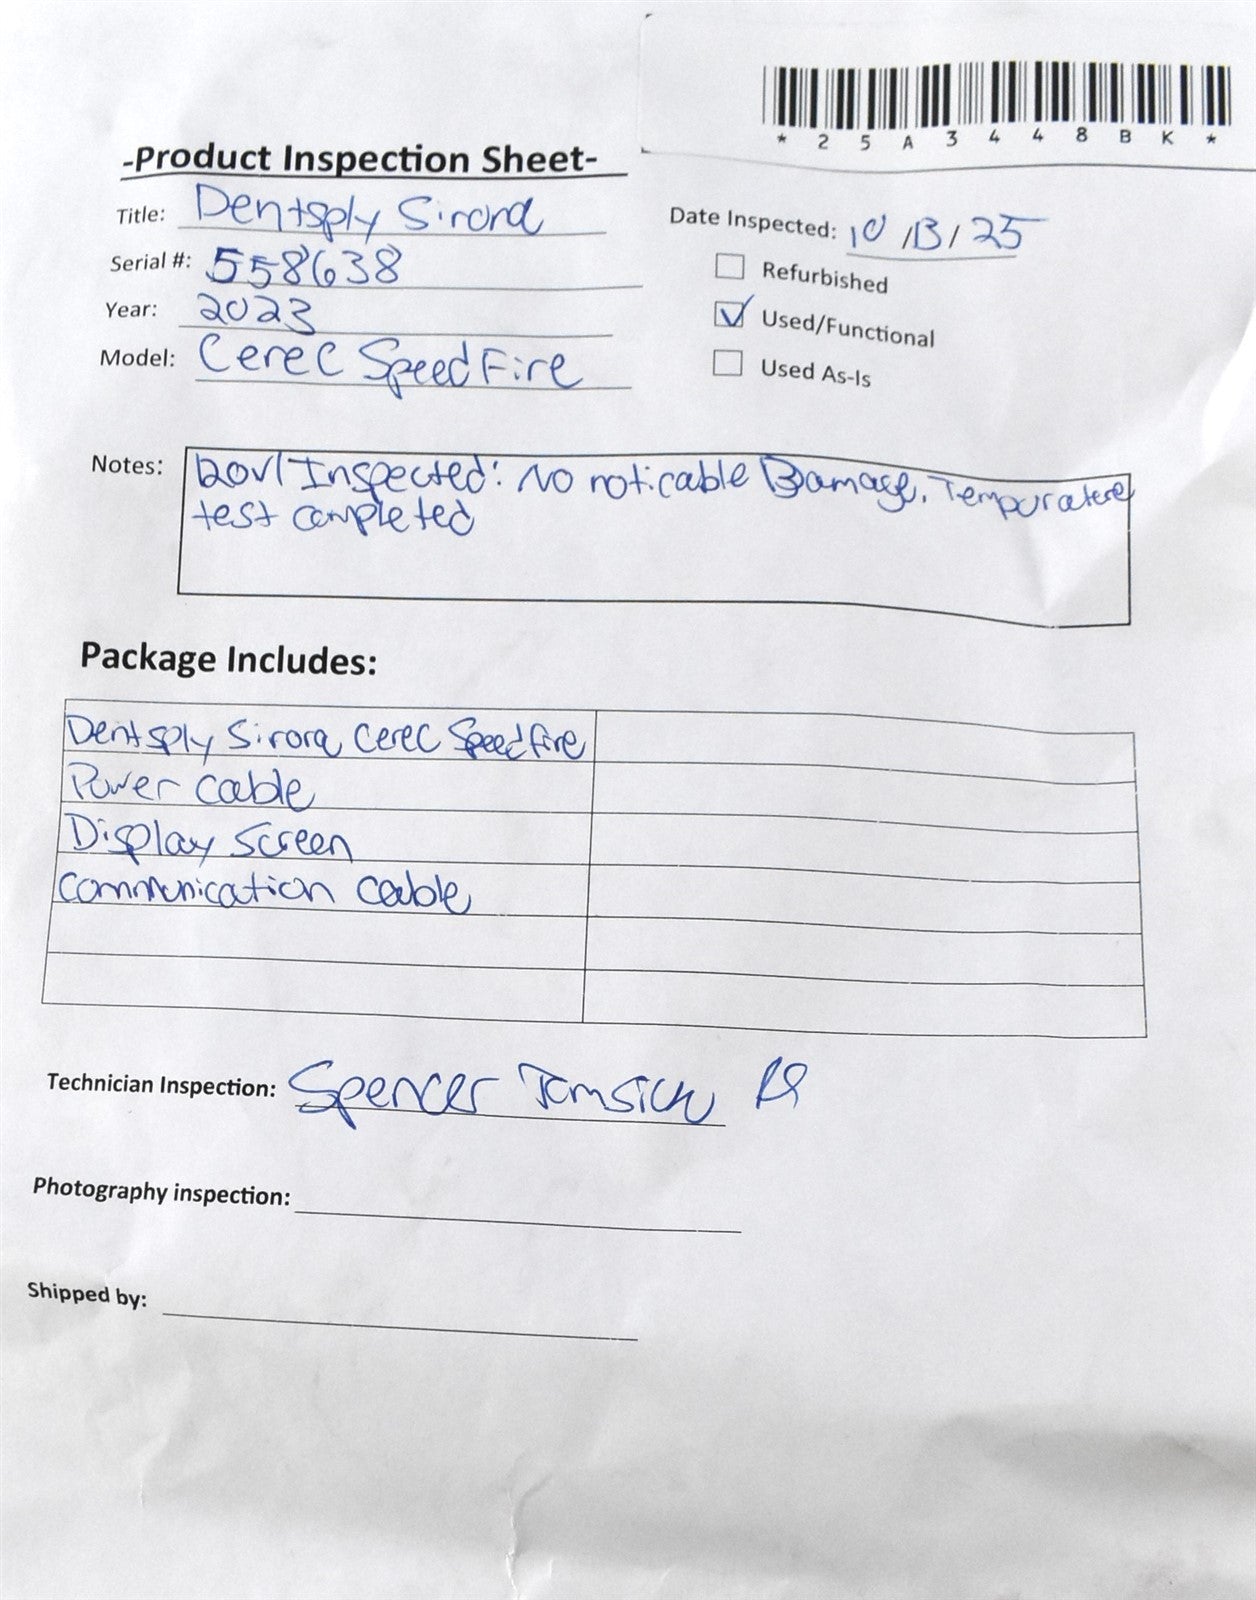 *25A3448BK*
-Product Inspection Sheet-
Title: Dentsply Sirona
Date Inspected: 10/13/25
Serial #: 558638
Refurbished
Year: 2023
Used/Functional
Model: Cerec SpeedFire
Used As-Is
Notes: Inspected: No noticable Damage, Tempurature
test completed
Package Includes:
Dentsply Sirona Cerec Speedfire
Power cable
Display screen
Communication cable
Technician Inspection: Spencer
Photography inspection:
Shipped by: